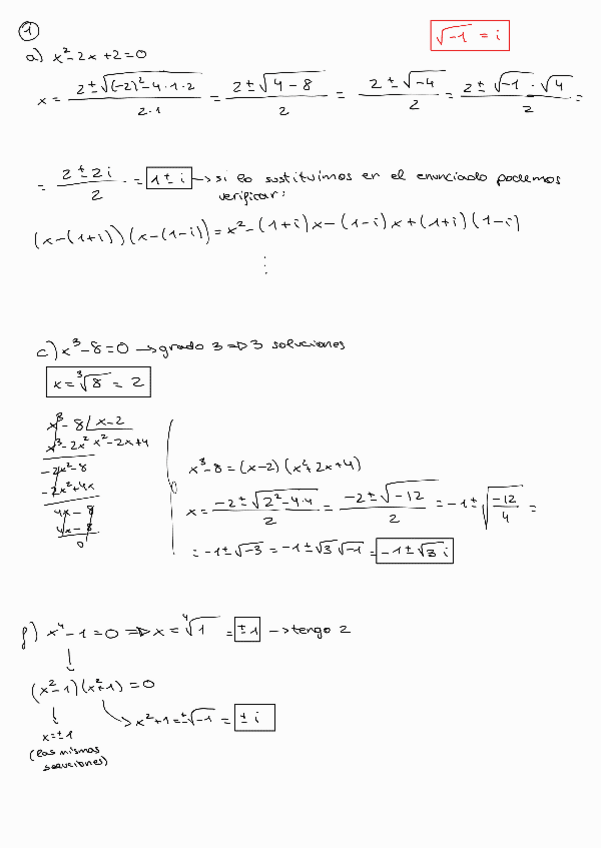 ① √-1 = i
a) x²-2x+2=0
x = (2±√((-2)²-4·1·2))/(2·1) = (2±√(4-8))/2 = (2±√-4)/2 = (2±√-1·√4)/2 =
= (2±2i)/2 = 1±i → si lo sustituimos en el enunciado podemos
verificar:
(x-(1+i))(x-(1-i)) = x²-(1+i)x-(1-i)x+(1+i)(1-i)
⋮
c) x³-8=0 → grado 3 ⇒ 3 soluciones
x = ∛8 = 2
x³-8 | x-2
x³-2x² x²-2x+4
-2x²-8
-2x²+4x
4x-8
4x-8
0
x³-8 = (x-2)(x²+2x+4)
x = (-2±√(2²-4·4))/2 = (-2±√-12)/2 = -1±√(-12/4) =
= -1±√-3 = -1±√3 √-1 = -1±√3 i
f) x⁴-1=0 ⇒ x = ∜1 = ±1 → tengo 2
↓
(x²-1)(x²+1)=0
↓ → x²+1=±√-1 = ±i
x=±1
(las mismas
soluciones)